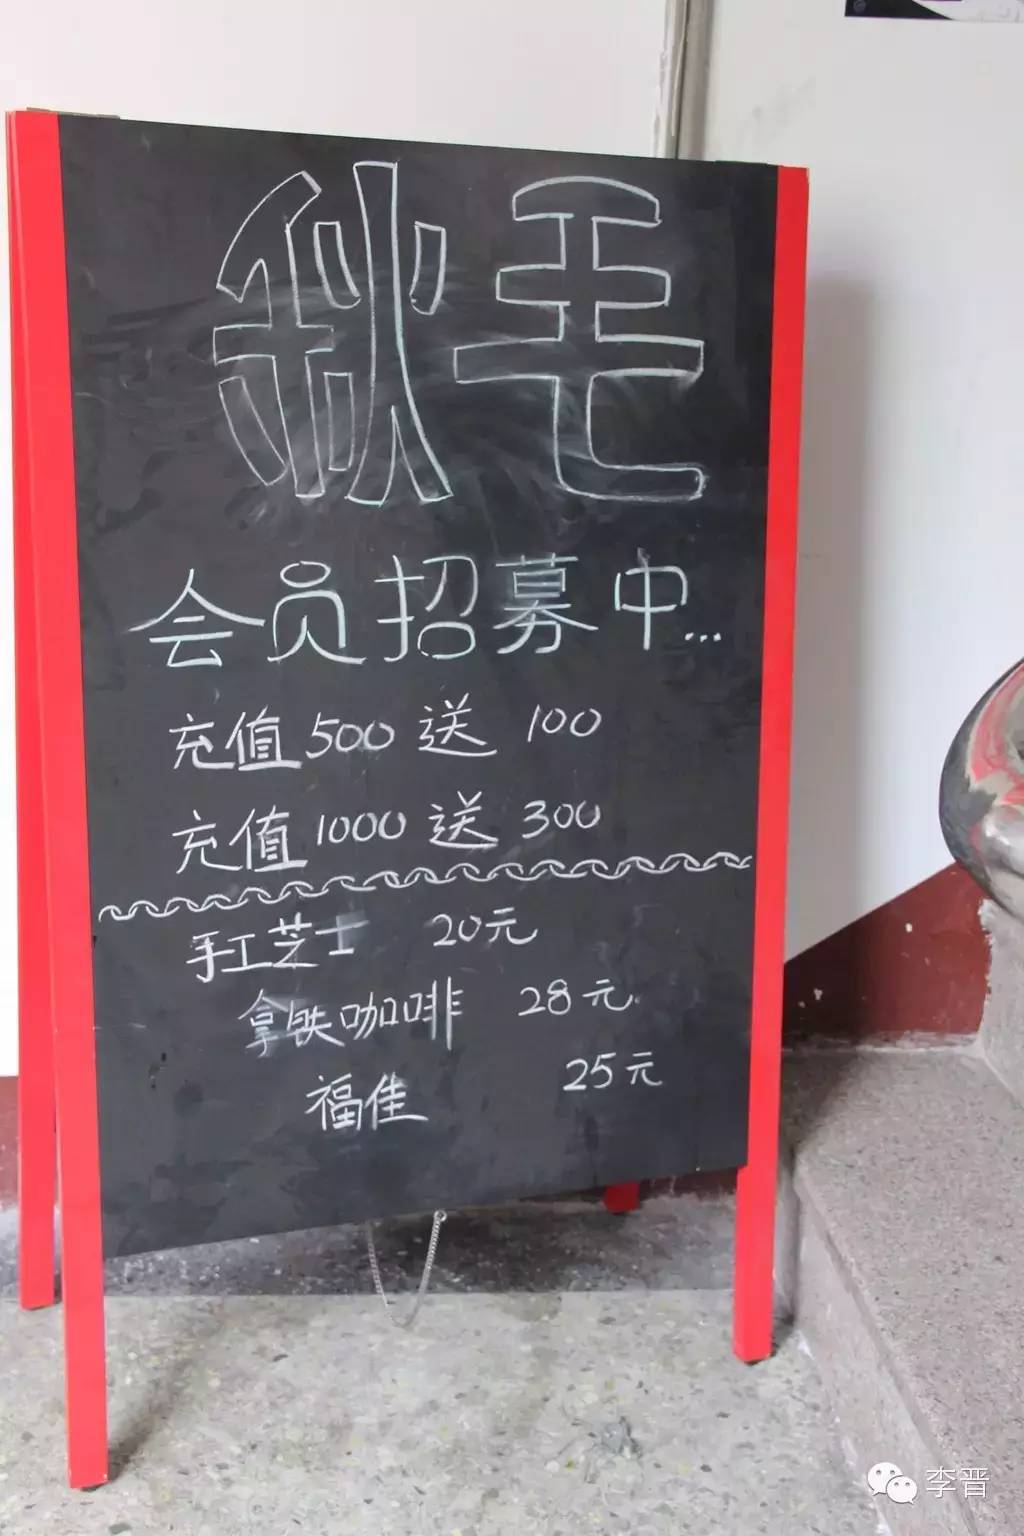 秋毛
会员招募中...
充值500送 100
充值1000送 300
手工芝士 20元
拿铁咖啡 28元
福佳 25元
李晋